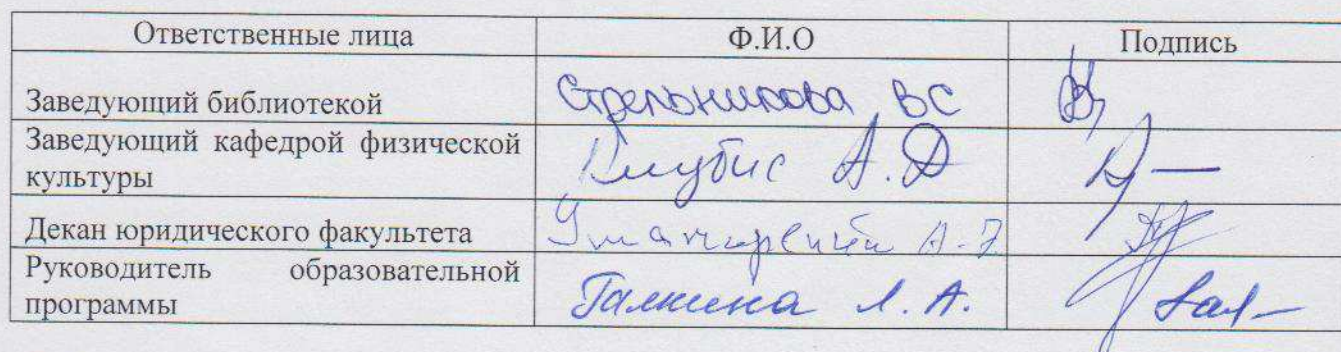 Ответственные лица Ф.И.О Подпись
Заведующий библиотекой Стрельникова ВС
Заведующий кафедрой физической
культуры А.Д
Декан юридического факультета
Руководитель образовательной
программы Галкина Л.А.